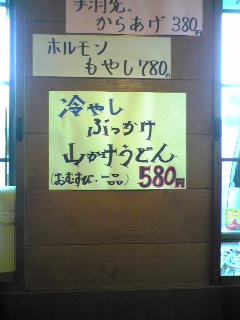 手羽先.
からあげ 380円
ホルモン
もやし 780円
冷やし
ぶっかけ
山かけうどん
(おむすび・一品) 580円